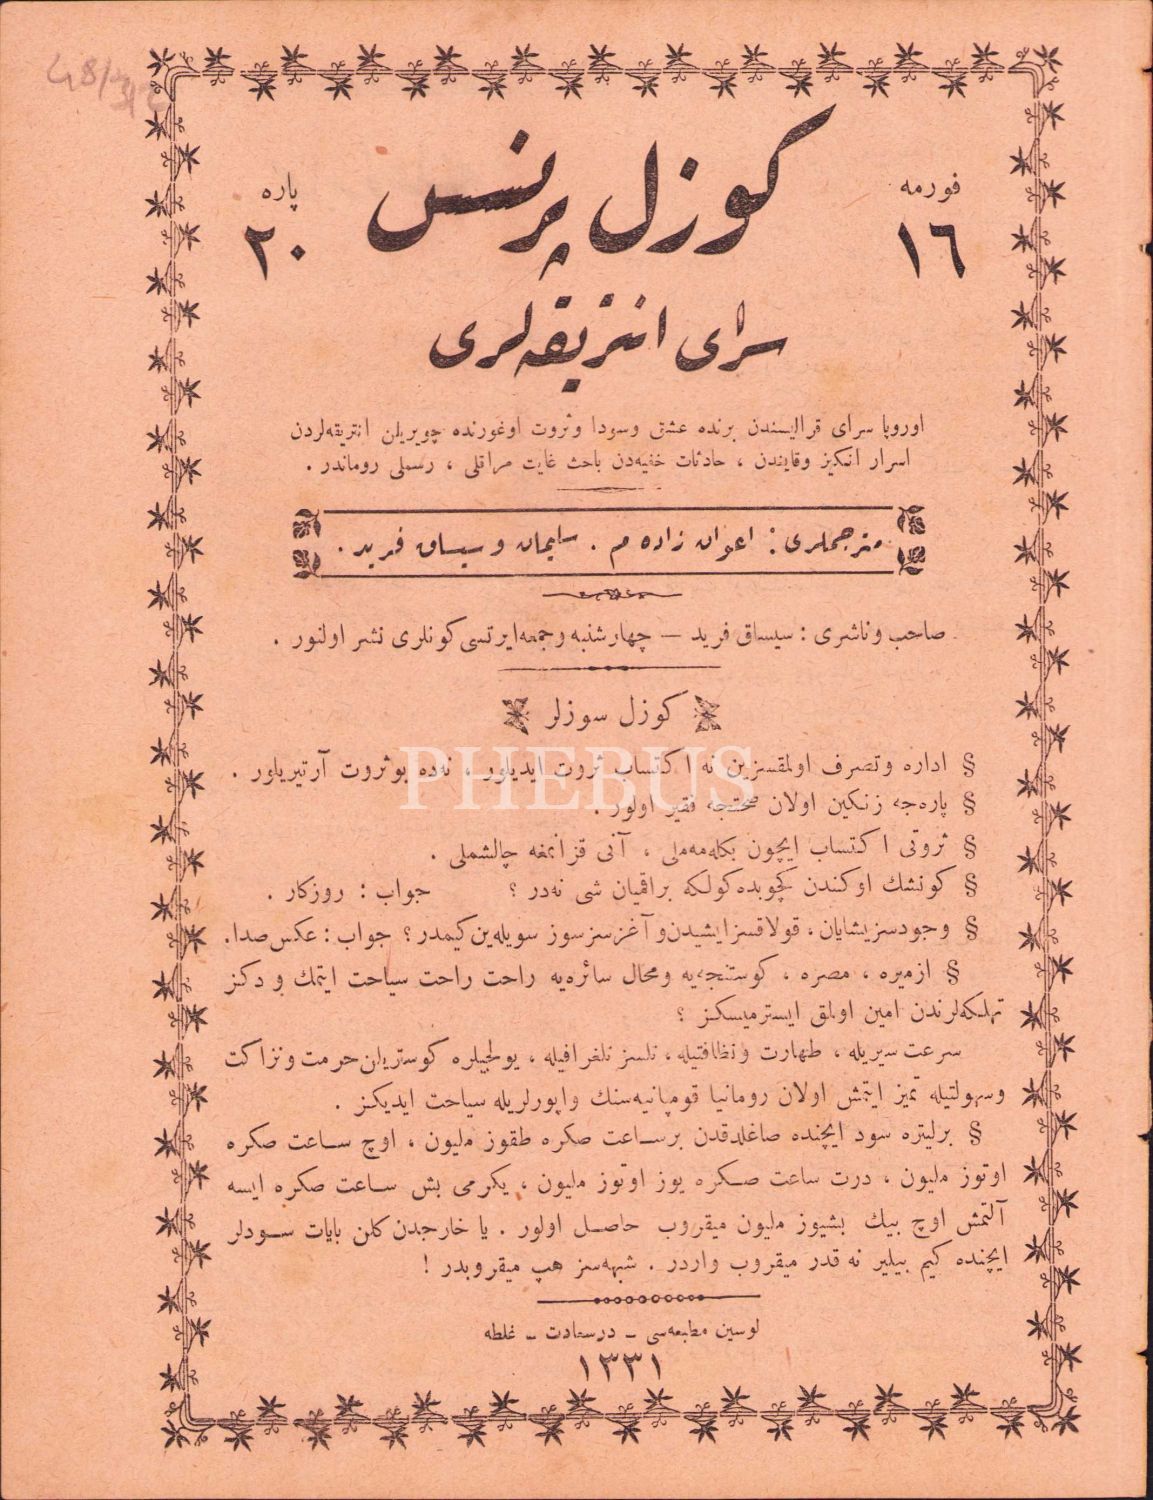 فورمه
١٦
كوزل پرنسس
پاره
٢٠
سراى انتريقه‌لرى
اوروپا سراى قراليسندن برنده عشق وسودا وثروت اوغورنده چويريلن انتريقه‌لردن
اسرار انكيز وقايندن ، حادثات خفيه‌دن باحث غايت مراقلى ، رسملى روماندر .
مترجملرى : اعوان زاده م . سليمان و سيساق فريد .
صاحب وناشرى : سيساق فريد — چهارشنبه وجمعه‌ايرتسى كونلرى نشر اولنور .
كوزل سوزلر
§ اداره وتصرف اولمقسزين نه اكتساب ثروت ايديلور ، نه‌ده بوثروت آرتيريلور .
§ پاره‌جه زنكين اولان صحتجه فقير اولور .
§ ثروتى اكتساب ايچون بكله‌مه‌ملى ، آنى قزانمغه چالشملى .
§ كونشك اوكندن كچوبده كولكه براقميان شى نه‌در ؟ جواب : روزكار .
§ وجودسزيشايان، قولاقسزايشيدن وآغزسزسوز سويله‌ين كيمدر؟ جواب : عكس صدا.
§ ازميره ، مصره ، كوستنجه‌يه ومحال سائره‌يه راحت راحت سياحت ايتمك و دكز
تهلكه‌لرندن امين اولمق ايسترميسكز ؟
سرعت سيريله ، طهارت ونظافتيله ، تلسز تلغرافيله ، يولجيلره كوستريلن حرمت ونزاكت
وسهولتيله تميز ايتمش اولان رومانيا قومپانيه‌سنك واپورلريله سياحت ايديكز .
§ برليتره سود ايچنده صاغلدقدن برساعت صكره طقوز مليون ، اوچ ساعت صكره
اوتوز مليون ، درت ساعت صكره يوز اوتوز مليون ، يكرمى بش ساعت صكره ايسه
آلتمش اوچ بيك بشيوز مليون ميقروب حاصل اولور . يا خارجدن كلن بايات سودلر
ايچنده كيم بيلير نه قدر ميقروب واردر . شبهه‌سز هپ ميقروبدر !
لوسين مطبعه‌سى – درسعادت – غلطه
١٣٣١
PHEBUS